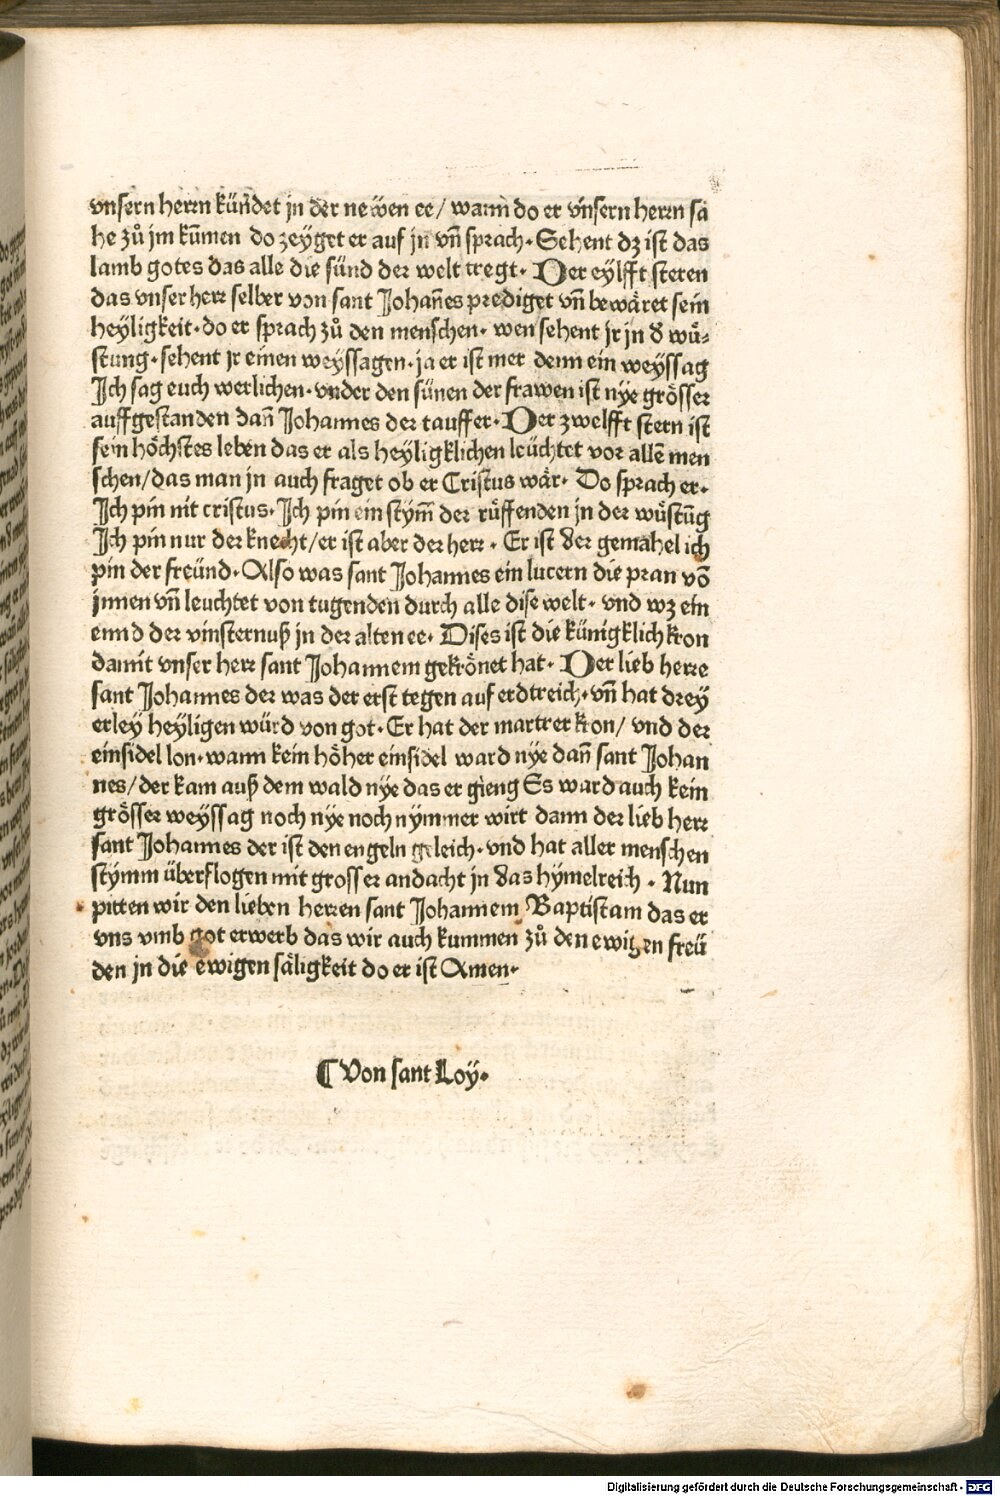 vnsern herrn kündet jn der newen ee/ wann do er vnsern herrn sä
he zů jm kūmen do zeÿget er auf jn vn̄ sprach· Sehent dz ist das
lamb gotes das alle die sünd der welt tregt· Der eÿlfft steren
das vnser herr selber von sant Johan̄es prediget vn̄ bewäret sein
heÿligkeit· do er sprach zů den menschen· wen sehent jr jn d̕ wů-
stung· sehent jr einen weÿssagen· ja er ist mer denn ein weÿssag
Jch sag euch werlichen· vnder den sünen der frawen ist nÿe grösser
auffgestanden dan̄ Johannes der tauffer· Der zwelfft stern ist
sein höchstes leben das er als heÿligklichen leüchtet vor allē men
schen/ das man jn auch fraget ob er Cristus wär· Do sprach er·
Jch pin nit cristus· Jch pin ein stÿm̄ der rüffenden jn der wüstūg
Jch pin nur der knecht/ er ist aber der herr· Er ist der gemahel ich
pin der freünd· Also was sant Johannes ein lucern die pran vō
jnnen vn̄ leuchtet von tugenden durch alle dise welt· vnd wz ein
ennd der vinsternuß jn der alten ee· Dises ist die künigklich kron
damit vnser herr sant Johannem gekrönet hat· Der lieb herre
sant Johannes der was der erst tegen auf erdtreich· vn̄ hat dreÿ
erleÿ heÿligen würd von got· Er hat der martrer kron/ vnd der
einsidel lon· wann kein höher einsidel ward nÿe dan̄ sant Johan
nes/ der kam auß dem wald nÿe das er gieng Es ward auch kein
grösser weÿssag noch nÿe noch nÿmmer wirt dann der lieb herr
sant Johannes der ist den engeln geleich· vnd hat aller menschen
stÿmm überflogen mit grosser andacht jn das hÿmelreich· Nun
pitten wir den lieben herren sant Johannem Baptistam das er
vns vmb got erwerb das wir auch kummen zů den ewigen freü
den jn die ewigen säligkeit do er ist Amen·
¶ Von sant Loÿ·
Digitalisierung gefördert durch die Deutsche Forschungsgemeinschaft - DFG